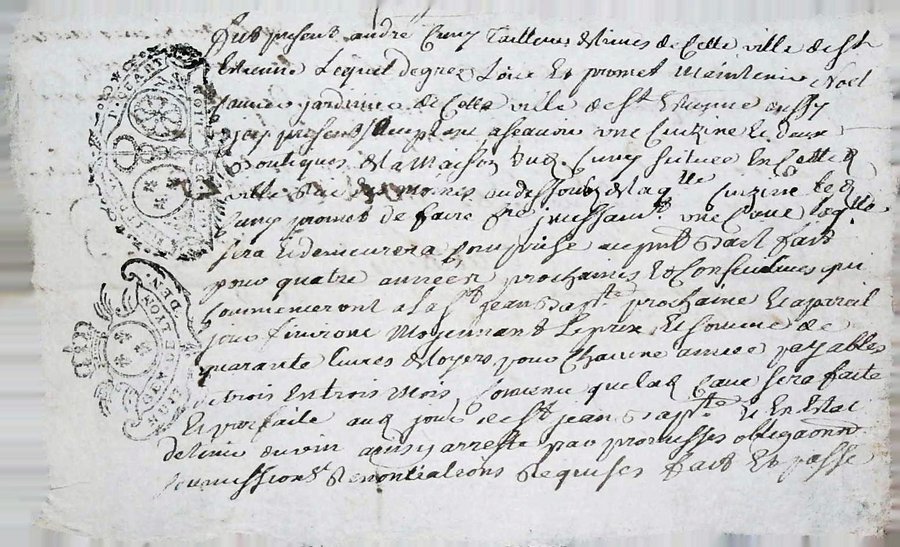 Fut present andré Cuny Tailleur d'limes de Cette ville de St
Estienne Lequel de gre a Loué Et promet Maintenir a Noel
jardinier de Cette ville de St Estienne aussy
icy present acceptant asçavoir une Cuizine Et deux
Boutiques de la Maison dud. Cuny scituée En Cette d
ville Rue des moines au dessoubz de laqlle Cuizine led
Cuny promet de faire une Cave laqlle
sera Et demeurera Comprise au pnt Bail fait
pour quatre années prochaines Et Consecutives qui
Commenceront a la St jean Bapte prochaine Et a pareil
jour finiront Moyennant Le prix Et somme de
quarante Livres de Loyers pour Chacune année payables
de trois En trois Mois, Convenu que lad Cave sera faite
Et parfaite aud jour de St jean Bapte Et En Etat
de tenir du vin ainsy arresté par promesses obligaons
soumissions Renontiations Requises fait Et passé
QUARTI
GEN DE LYON
DEN.